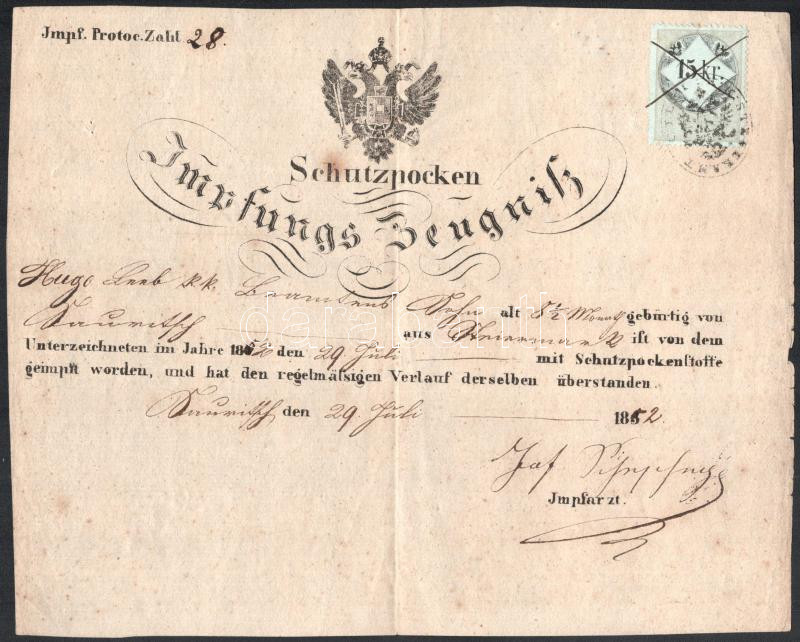 Jmpf. Protoc. Zahl 28.
15 kr.
Schutzpocken
Impfungs Zeugniß
Hugo Leeb k.k. Beamtens Sohn alt 8½ Monat gebürtig von
Sauritsch aus Steiermark ist von dem
Unterzeichneten im Jahre 1852 den 29 Juli mit Schutzpockenstoffe
geimpft worden, und hat den regelmäsigen Verlauf derselben überstanden.
Sauritsch den 29. Juli 1852.
Jos
Jmpfarzt.